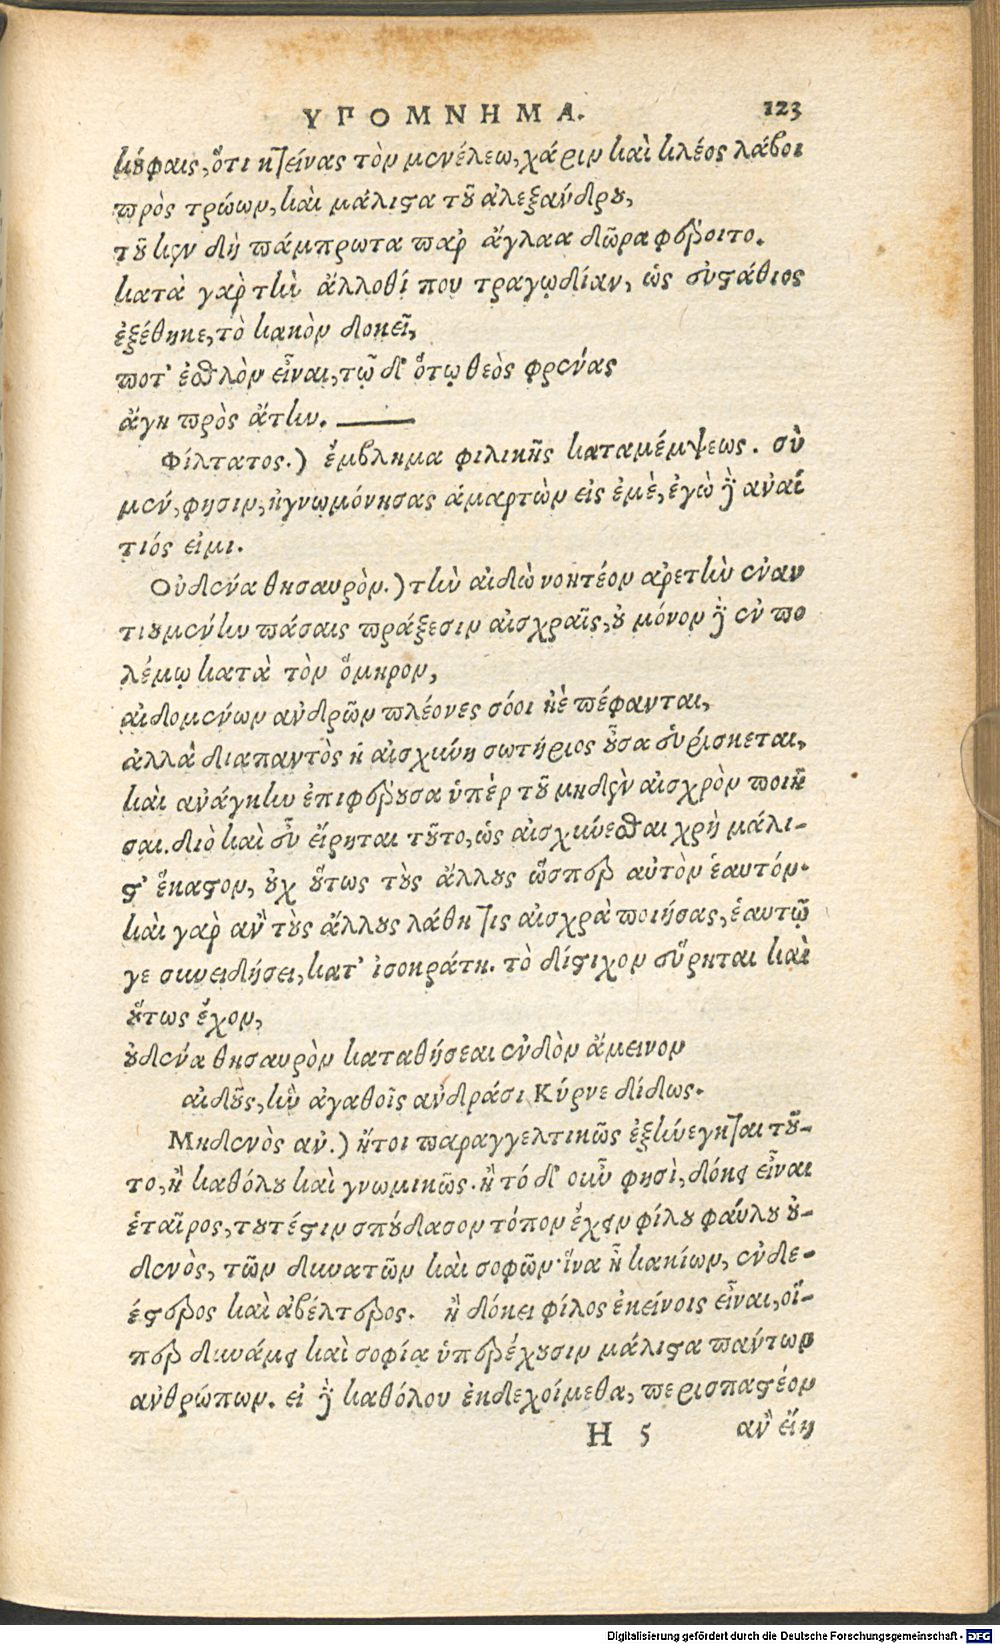 ΥΠΟΜΝΗΜΑ. 123
κούφαις, ὅτι κτείνας τὸν μενέλεω, χάριν καὶ κλέος λάβοι
πρὸς τρώων, καὶ μάλιστα τοῦ ἀλεξάνδρου,
τοῦ κεν δὴ πάμπρωτα παρ ἄγλαα δῶρα φέροιτο.
κατὰ γὰρ τὴν ἄλλοθί που τραγωδίαν, ὡς εὐστάθιος
ἐξέθηκε, τὸ κακὸν δοκεῖ,
ποτ' ἐσθλὸν εἶναι, τῷ δ' ὅτῳ θεὸς φρένας
ἄγη πρὸς ἄτην.
Φίλτατος.) ἔμβλημα φιλικῆς καταμέμψεως. σὺ
μέν, φησιν, ἠγνωμόνησας ἁμαρτὼν εἰς ἐμὲ, ἐγὼ δὲ ἀναί
τιός εἰμι.
Οὐδένα θησαυρὸν.) τὴν αἰδὼ νοητέον ἀρετὴν ἐναν
τιουμένην πάσαις πράξεσιν αἰσχραῖς, οὐ μόνον δὲ ἐν πο
λέμῳ κατὰ τὸν ὅμηρον,
αἰδομένων ἀνδρῶν πλέονες σόοι ἠὲ πέφανται,
ἀλλὰ διαπαντὸς ἡ αἰσχύνη σωτήριος οὖσα εὑρίσκεται,
καὶ ἀνάγκην ἐπιφέρουσα ὑπὲρ τοῦ μηδὲν αἰσχρὸν ποιῆ
σαι. διὸ καὶ εὖ εἴρηται τοῦτο, ὡς αἰσχύνεσθαι χρὴ μάλι-
στ' ἕκαστον, οὐχ οὕτως τοὺς ἄλλους ὥσπερ αὐτὸν ἑαυτόν.
καὶ γὰρ ἂν τοὺς ἄλλους λάθη τις αἰσχρὰ ποιήσας, ἑαυτῷ
γε συνειδήσει, κατ' ἰσοκράτη. τὸ δίστιχον εὕρηται καὶ
οὕτως ἔχον,
οὐδένα θησαυρὸν καταθήσεαι ἔνδον ἄμεινον
αἰδοῦς, ἣν ἀγαθοῖς ἀνδράσι Κύρνε δίδως.
Μηδενὸς ἀν.) ἤτοι παραγγελτικῶς ἐξήνεγκται τοῦ-
το, ἢ καθόλου καὶ γνωμικῶς. ἢ τό δ' οὖν φησὶ, δόκει εἶναι
ἑταῖρος, τουτέστιν σπούδασον τόπον ἔχειν φίλου φαύλου οὐ-
δενὸς, τῶν δυνατῶν καὶ σοφῶν· ἵνα ᾖ κακίων, ἐνδε-
έστερος καὶ ἀβέλτερος. ἢ δόκει φίλος ἐκείνοις εἶναι, οἵ-
περ δυνάμει καὶ σοφία ὑπερέχουσιν μάλιστα πάντων
ἀνθρώπων. εἰ δὲ καθόλου ἐκδεχοίμεθα, περισπαστέον
H 5 ἂν εἴη
Digitalisierung gefördert durch die Deutsche Forschungsgemeinschaft - DFG